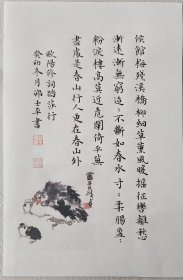 候館梅殘溪橋柳細草薰風暖搖征轡離愁
漸遠漸無窮迢〻不斷如春水寸〻柔腸盈〻
粉淚樓高莫近危闌倚平蕪
盡處是春山行人更在春山外
歐陽修詞踏莎行
癸卯冬月邵士平書